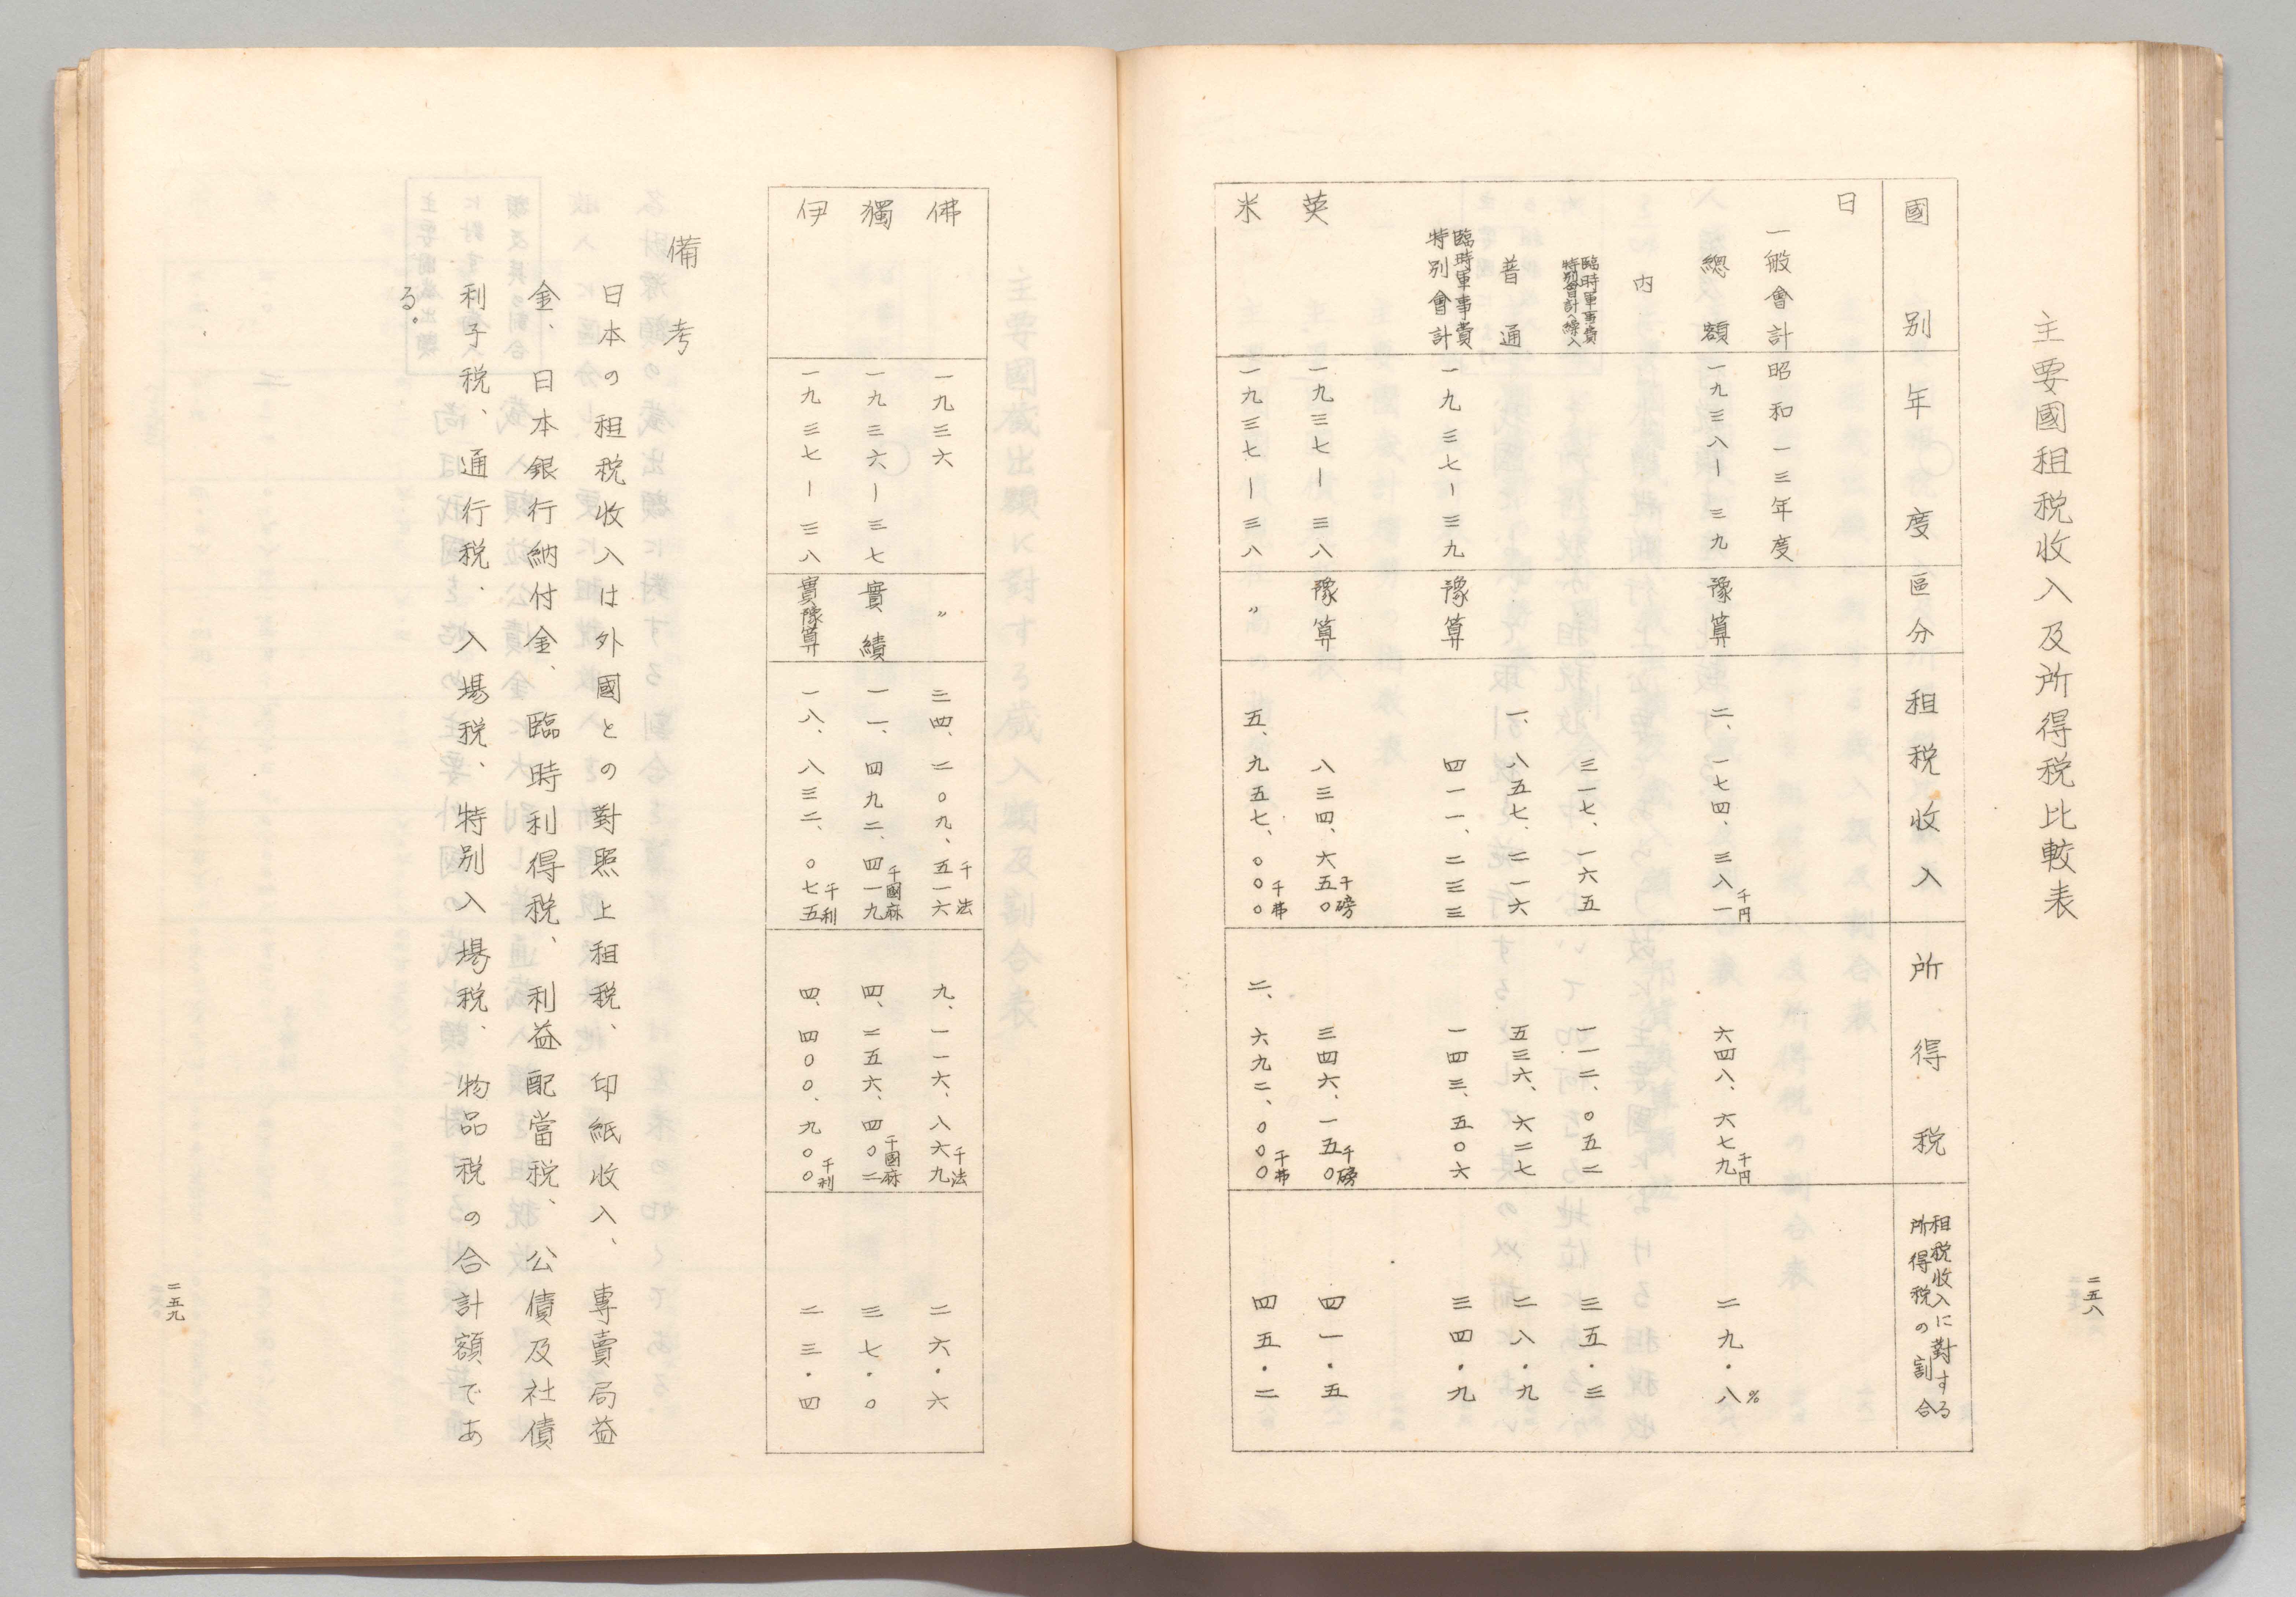 主要國租税收入及所得税比較表
二五八
國別
年度
區分
租税收入
所得税
租税收入に對する所得税の割合
日
一般會計
昭和一三年度
總額
一九三八ー三九
豫算
二、一七四、三八一千円
六四八、六七九千円
二九・八%
内
臨時軍事費特別會計へ繰入
三一七、一六五
一一二、〇五二
三五・三
普通
一、八五七、二一六
五三六、六二七
二八・九
臨時軍事費特別會計
一九三七ー三九
豫算
四一一、二三三
一四三、五〇六
三四・九
英
一九三七ー三八
豫算
八三四、六五〇千磅
三四六、一五〇千磅
四一・五
米
一九三七ー三八
〃
五、九五七、〇〇〇千弗
二、六九二、〇〇〇千弗
四五・二
佛
一九三六
〃
三四、二〇九、五一六千法
九、一一六、八六九千法
二六・六
獨
一九三六ー三七
實績
一一、四九二、四一九千國麻
四、二五六、四〇二千國麻
三七・〇
伊
一九三七ー三八
實豫算
一八、八三二、〇七五千利
四、四〇〇、九〇〇千利
二三・四
備考
日本の租税收入は外國との對照上租税、印紙收入、專賣局益
金、日本銀行納付金、臨時利得税、利益配當税、公債及社債
利子税、通行税、入場税、特別入場税、物品税の合計額であ
る。
二五九